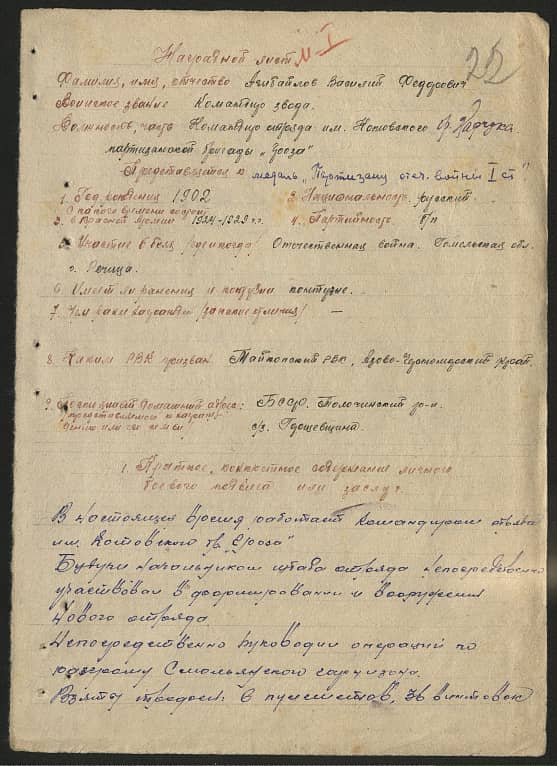 Наградной лист М-I
22
Фамилия, имя, отчество Азибайлов Василий Федорович
Воинское звание Командир взвода.
Должность, часть Командир отряда им. Котовского
партизанской бригады „Гроза"
Представляется к медаль „Партизану отеч. войны I ст"
1. Год рождения 1902 3. Национальность русский
С какого времени состоит
2. в Красной Армии 1924-1929 г.г. 4. Партийность б/п
5. Участие в боях /где и когда/ Отечественная война. Гомельская обл.
г. Речица.
6. Имеет ли ранения и контузии контузие.
7. Чем ранее награжден /за какие отличия/ —
8. Каким РВК призван Майкопский РВК, Азово-Черноморский
9. Постоянный домашний адрес: БССР. Толочинский р-н.
представляемого к награж-
дению или его семьи с/з.
1. Краткое, конкретное содержание личного
боевого подвига или заслуг.
В настоящее время работает Командиром отряда
им. Котовского „Гроза"
Будучи начальником штаба отряда непосредственно
участвовал в формировании и вооружении
нового отряда.
Непосредственно руководил операцией по
разгрому Смольянского гарнизона.
Взяты трофеи: 6 пулеметов, 36 винтовок